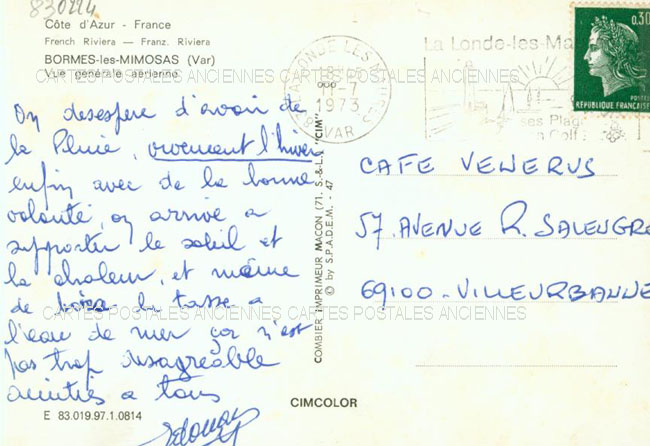 830224
Côte d'Azur - France
French Riviera — Franz. Riviera
BORMES-les-MIMOSAS (Var)
Vue générale aérienne
CARTES POSTALES ANCIENNES CARTES POSTALES ANCIENNES CARTES POSTALES ANCIENNES
On desespère d'avoir de
la Pluie, vivement l'hiver
enfin avec de la bonne
volonté, on arrive a
supporter le soleil et
la chaleur, et même
de boire la tasse a
l'eau de mer ça n'est
pas trop desagréable
amitiés a tous
Edouard
E 83.019.97.1.0814
COMBIER IMPRIMEUR MACON (71. S.-&-L.) "CIM"
© by S.P.A.D.E.M. - 47
CIMCOLOR
LA LONDE LES MAURES
-7
1973
VAR
La Londe-les-Ma
ses Plag
n Golf
0,30
POSTES
REPUBLIQUE FRANÇAISE
CAFE VENERUS
57. AVENUE R. SALENGRO
69100 - VILLEURBANNE
CARTES POSTALES ANCIENNES CARTES POSTALES ANCIENNES CARTES POSTALES ANCIENNES